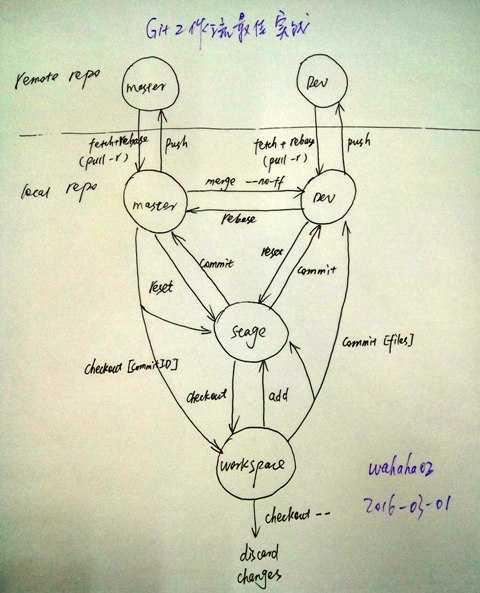 Git工作流最佳实践
remote repo
master
Dev
fetch+rebase
(pull -r)
push
fetch + rebase
(pull -r)
push
local repo
master
merge --no-ff
rebase
Dev
reset
commit
reset
commit
stage
checkout [commitID]
checkout
add
commit [files]
workspace
checkout --
discard
changes
wahaha02
2016-03-01